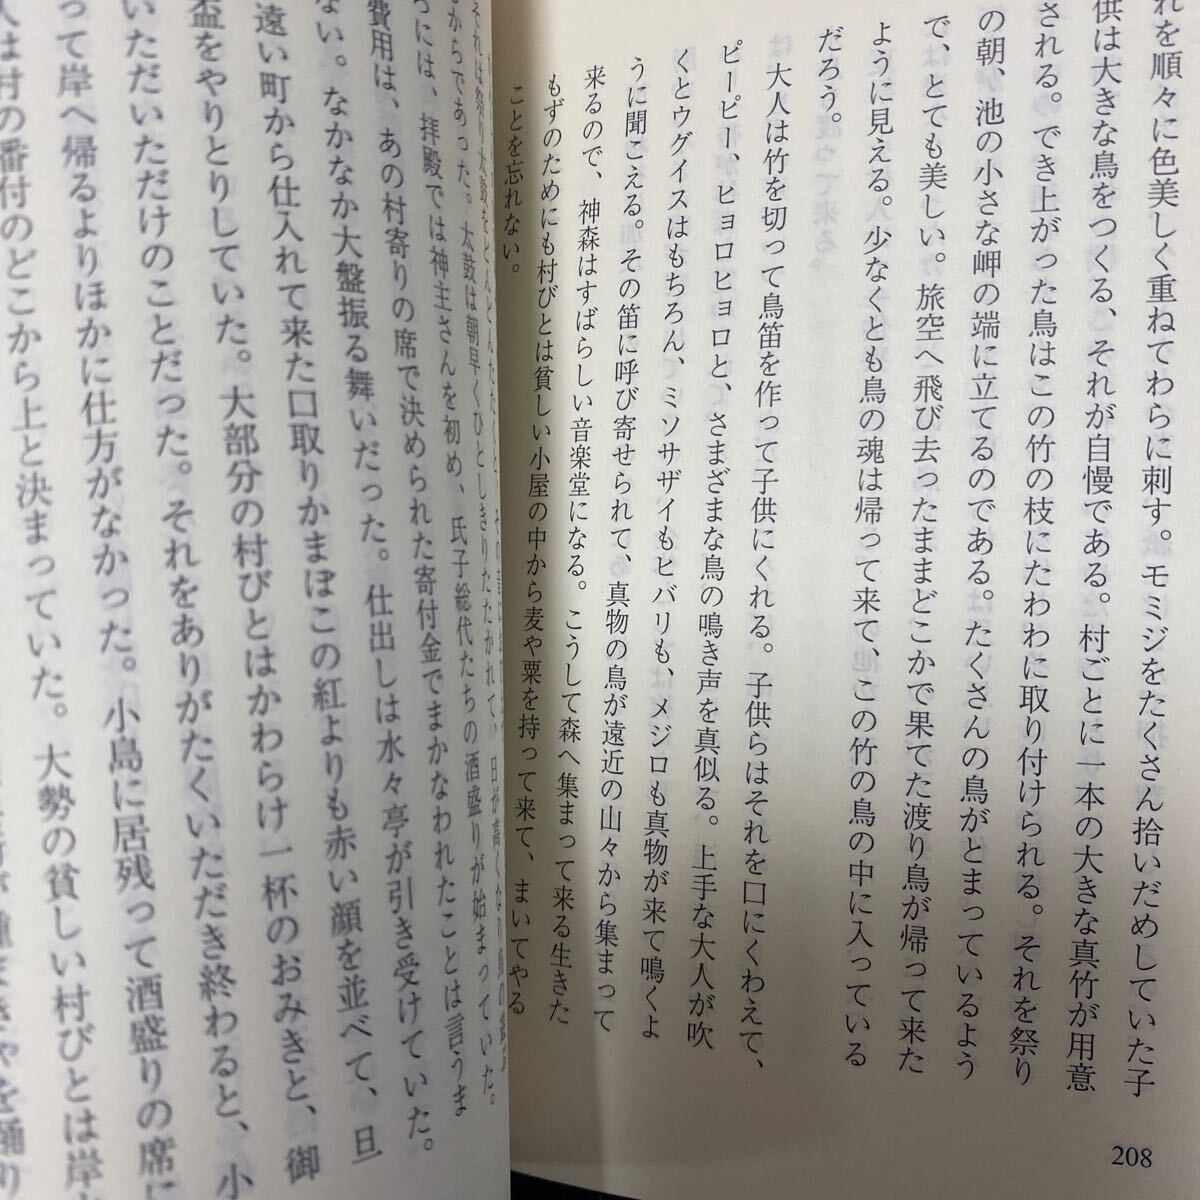 れを順々に色美しく重ねてわらに刺す。モミジをたくさん拾いだめしていた子
供は大きな鳥をつくる、それが自慢である。村ごとに一本の大きな真竹が用意
される。でき上がった鳥はこの竹の枝にたわわに取り付けられる。それを祭り
の朝、池の小さな岬の端に立てるのである。たくさんの鳥がとまっているよう
で、とても美しい。旅空へ飛び去ったままどこかで果てた渡り鳥が帰って来た
ように見える。少なくとも鳥の魂は帰って来て、この竹の鳥の中に入っている
だろう。
大人は竹を切って鳥笛を作って子供にくれる。子供らはそれを口にくわえて、
ピーピー、ヒョロヒョロと、さまざまな鳥の鳴き声を真似る。上手な大人が吹
くとウグイスはもちろん、ミソサザイもヒバリも、メジロも真物が来て鳴くよ
うに聞こえる。その笛に呼び寄せられて、真物の鳥が遠近の山々から集まって
来るので、神森はすばらしい音楽堂になる。こうして森へ集まって来る生きた
もずのためにも村びとは貧しい小屋の中から麦や粟を持って来て、まいてやる
ことを忘れない。
208
それは祭り太鼓をどんどんたたくと、その音に
日が高くなり
からであった。太鼓は朝早くひとしきりたたかれて、
うには、拝殿では神主さんを初め、氏子総代たちの酒盛りが始まっていた。
費用は、あの村寄りの席で決められた寄付金でまかなわれたことは言うま
ない。なかなか大盤振る舞いだった。仕出しは水々亭が引き受けていた。
遠い町から仕入れて来た口取りかまぼこの紅よりも赤い顔を並べて、旦
盃をやりとりしていた。大部分の村びとはかわらけ一杯のおみきと、御
いただいただけのことだった。それをありがたくいただき終わると、小
って岸へ帰るよりほかに仕方がなかった。小島に居残って酒盛りの席に
人は村の番付のどこから上と決まっていた。大勢の貧しい村びとは岸